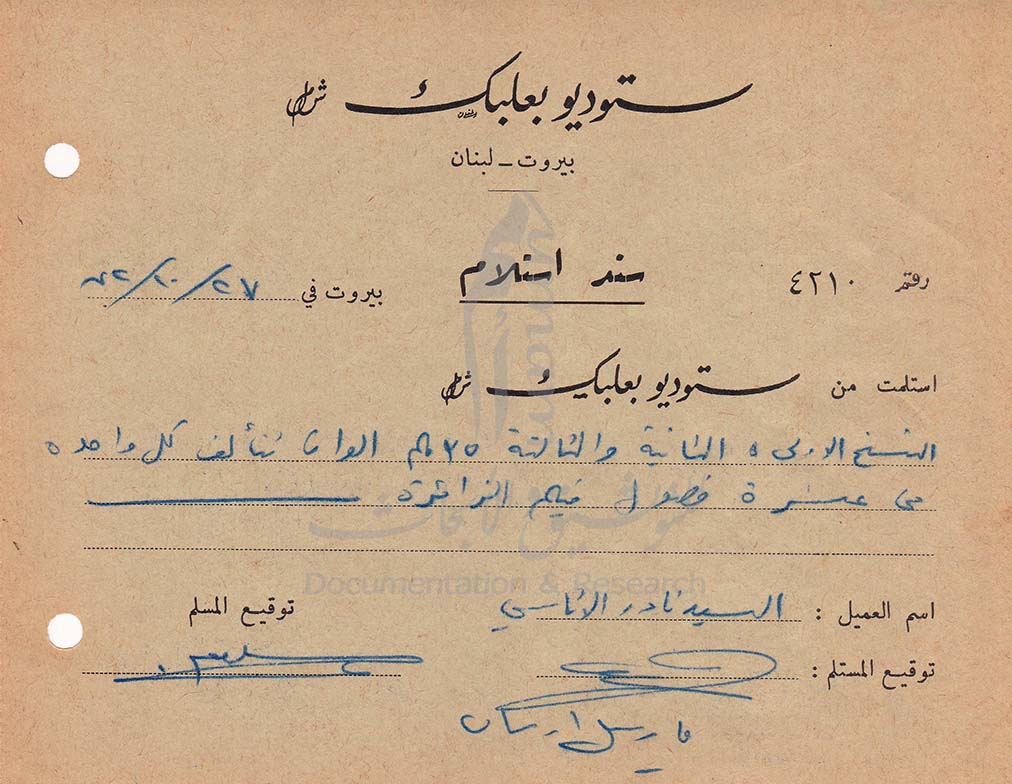 ستوديو بعلبك ش.م.ل
بيروت - لبنان
رقم ٤٢١٠
سند استلام
بيروت في ٢٧/١٠/٧٢
استلمت من ستوديو بعلبك ش.م.ل
النسخ الاولى و الثانية والثالثة ٣٥ ملم الوان تتألف كل واحدة
من عشرة فصول فيلم الزائرة
Documentation & Research
اسم العميل : السيد نادر الاتاسي
توقيع المسلم
توقيع المستلم :